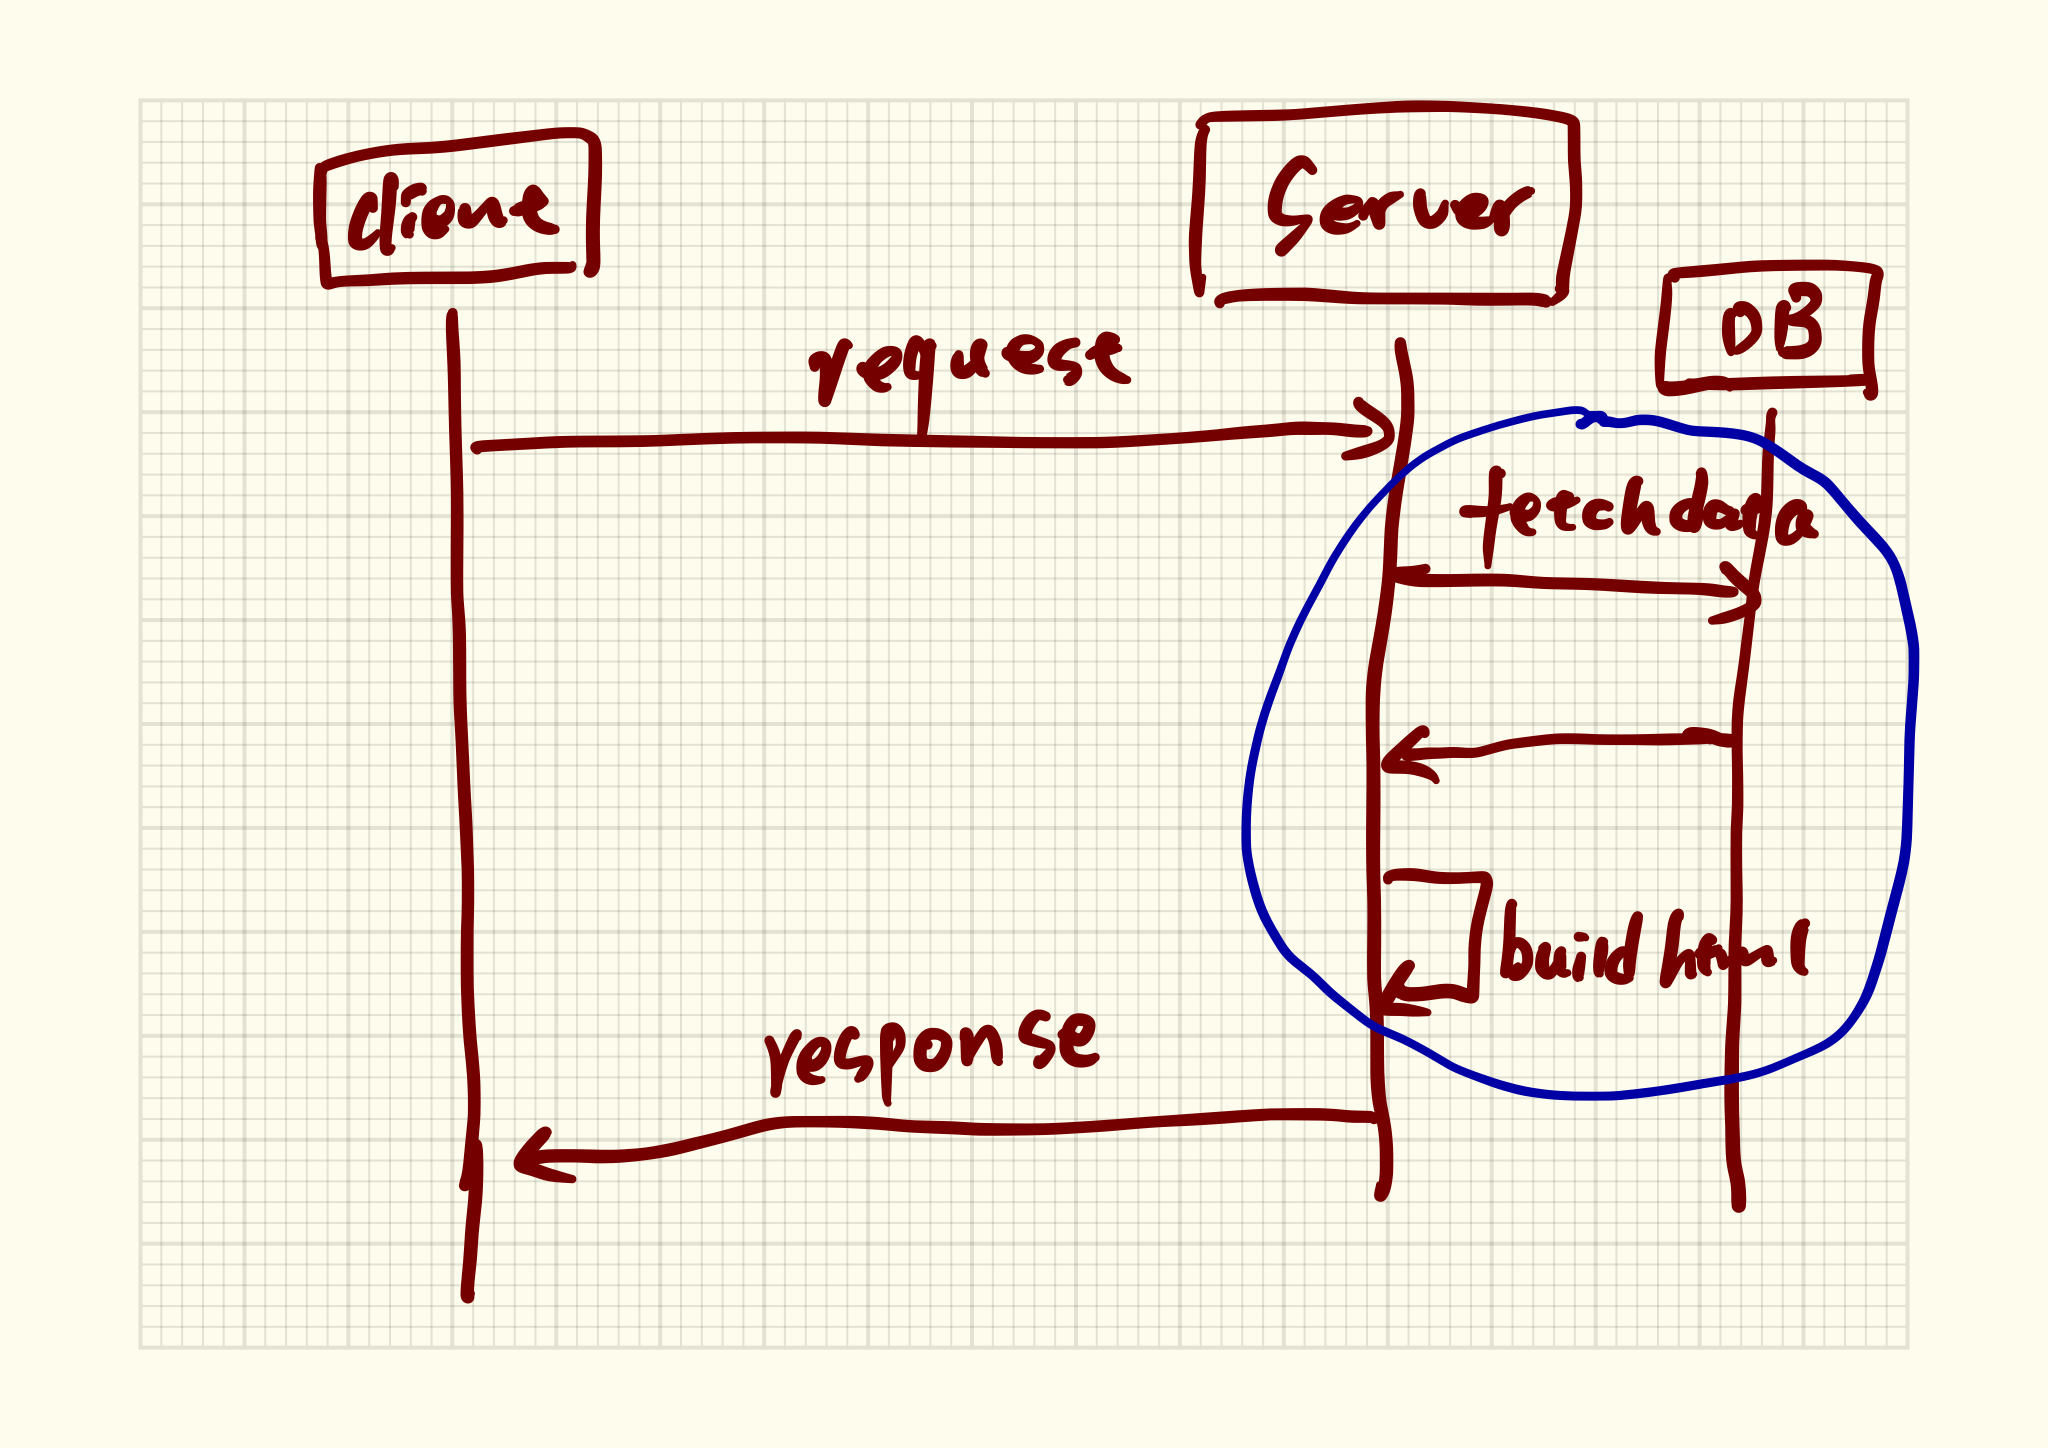 client
Server
DB
request
fetch data
build html
response